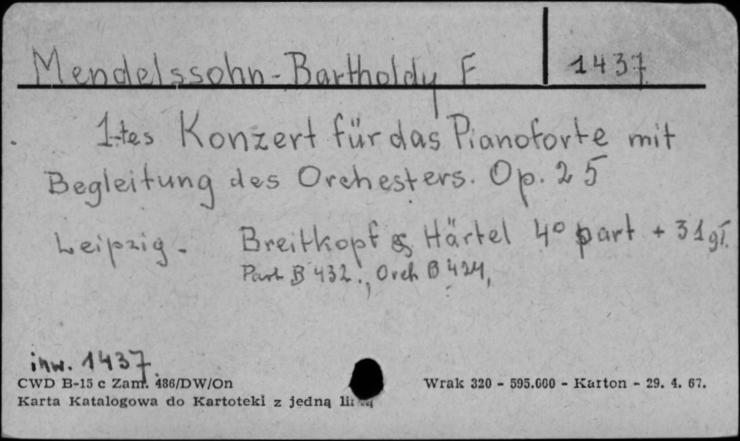 Mendelssohn-Bartholdy F
1437
1-tes Konzert für das Pianoforte mit
Begleitung des Orchesters. Op. 25
Leipzig - Breitkopf & Härtel 4° part + 31 gł.
Part B 432., Orch B 424,
inw. 1437.
CWD B-15 c Zam. 486/DW/On
Wrak 320 - 595.000 - Karton - 29. 4. 67.
Karta Katalogowa do Kartoteki z jedną